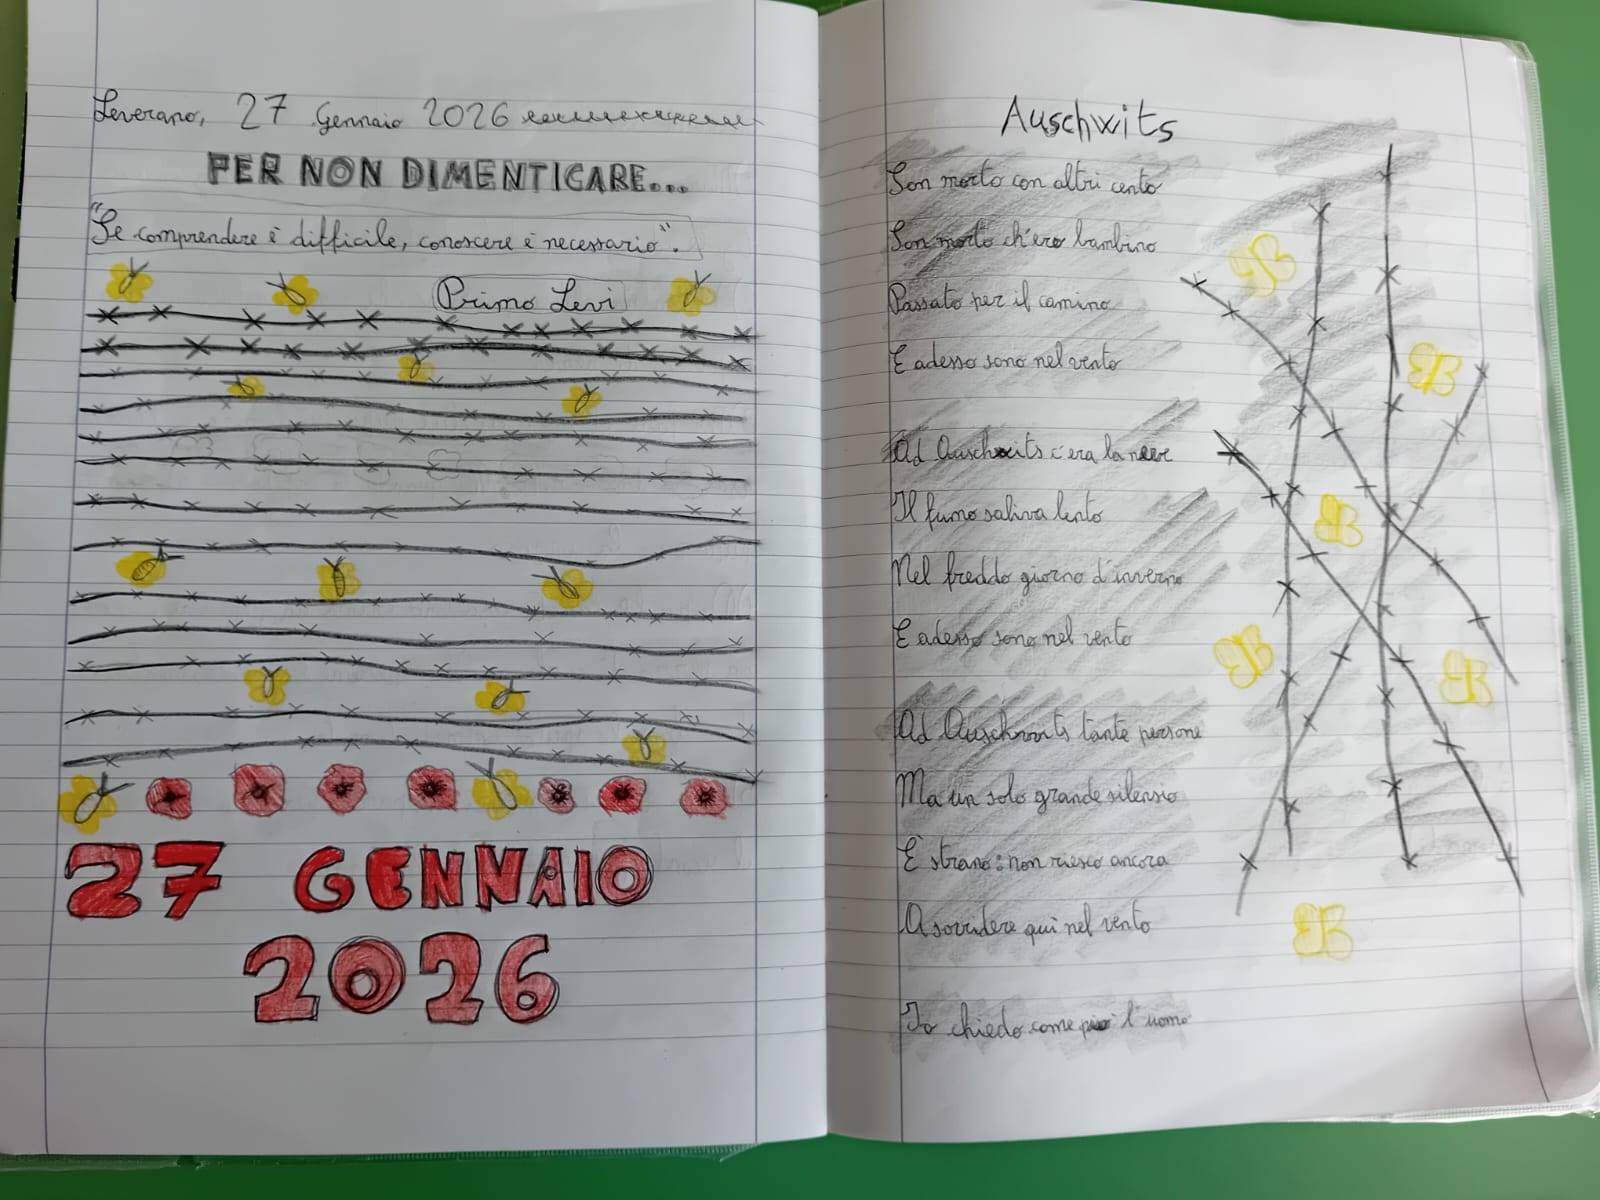 Leverano, 27 Gennaio 2026
PER NON DIMENTICARE...
"Se comprendere è difficile, conoscere è necessario".
Primo Levi
27 GENNAIO
2026
Auschwits
Son morto con altri cento
Son morto ch'ero bambino
Passato per il camino
E adesso sono nel vento
Ad Auschwits c'era la neve
Il fumo saliva lento
Nel freddo giorno d'inverno
E adesso sono nel vento
Ad Auschwits tante persone
Ma un solo grande silenzio
È strano: non riesco ancora
A sorridere qui nel vento
Io chiedo come può l'uomo